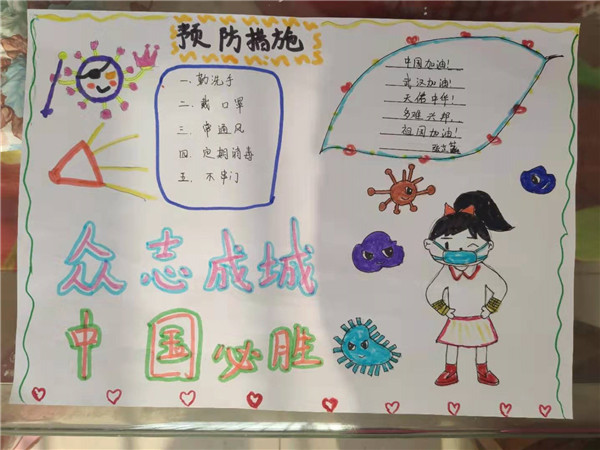 预防措施
一.勤洗手
二.戴口罩
三.常通风
四.定期消毒
五.不串门
中国加油!
武汉加油!
天佑中华!
多难兴邦
祖国加油!
众志成城
中国必胜